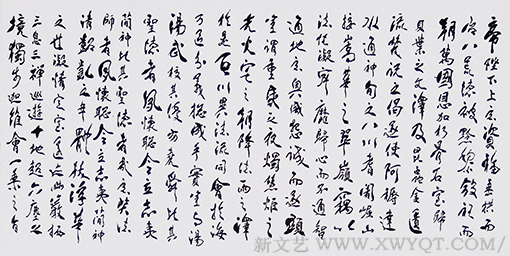 帝陛下上玄資福垂拱而
治八荒德被黔黎斂衽而
朝萬國恩加朽骨石室歸
貝葉之文澤及昆蟲金匱
流梵說之偈遂使阿耨達
水通神甸之八川耆闍崛山
接嵩華之翠嶺竊以
法性凝寂靡歸心而不通智
地玄奧感懇誠而遂顯
豈謂重昏之夜燭慧炬之
光火宅之朝降法雨之澤
於是百川異流同會於海
万區分義總成乎實豈与湯
湯武校其優劣堯舜比其
聖德者夙懷聰令立志夷
簡神比其聖德者哉玄奘法
師者夙懷聰令立志夷簡神
清齠齔之年體拔浮華
之世凝情定室匿迹幽巖栖
三息三禪巡遊十地超六塵之
境獨步迦維會一乘之旨
新文艺 / WWW.XWYQT.COM/